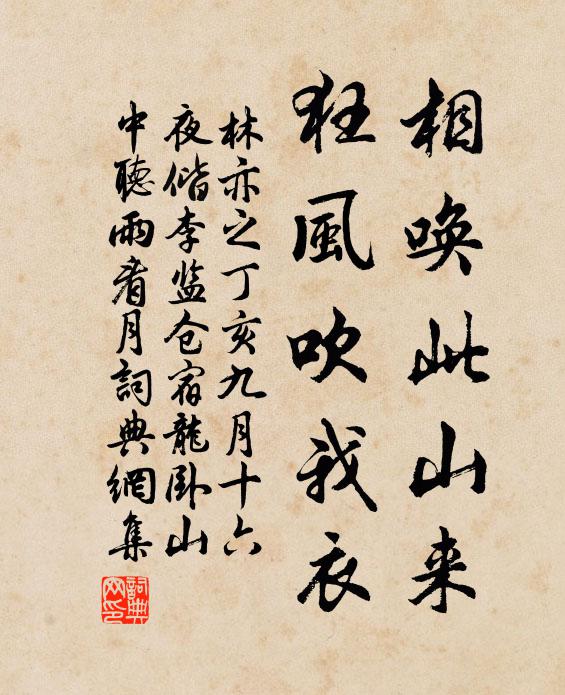 相唤此山来
狂風吹我衣
林亦之丁亥九月十六
夜偕李监仓宿龍卧山
中聽雨看月詞典網集
詞典网印